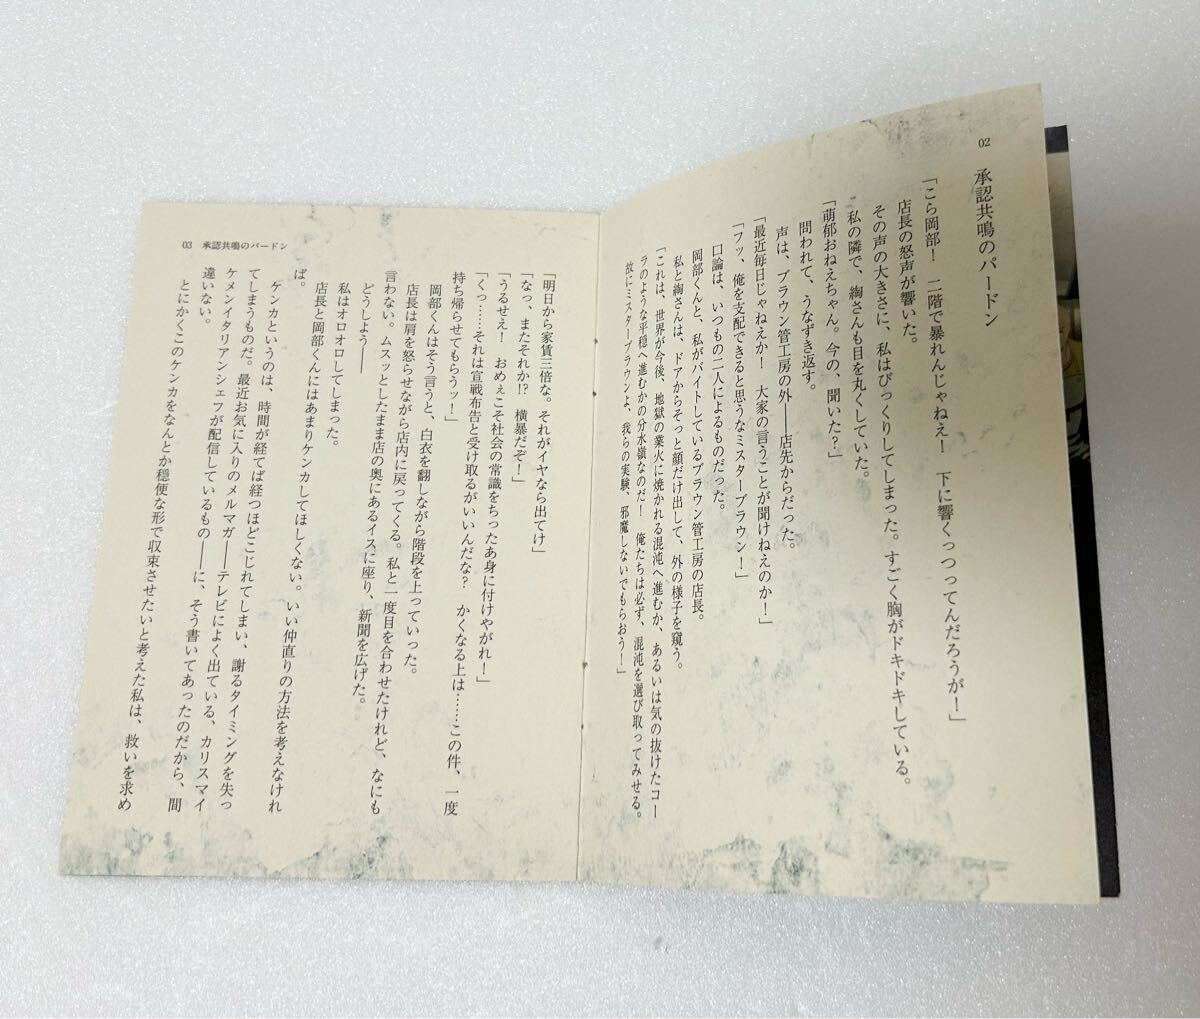 02
承認共鳴のパードン
「こら岡部！　二階で暴れんじゃねえ！　下に響くっつってんだろうが！」
店長の怒声が響いた。
その声の大きさに、私はびっくりしてしまった。すごく胸がドキドキしている。
私の隣で、綯さんも目を丸くしていた。
「萌郁おねえちゃん。今の、聞いた？」
問われて、うなずき返す。
声は、ブラウン管工房の外――店先からだった。
「最近毎日じゃねえか！　大家の言うことが聞けねえのか！」
「フッ、俺を支配できると思うなミスターブラウン！」
口論は、いつもの二人によるものだった。
岡部くんと、私がバイトしているブラウン管工房の店長。
私と綯さんは、ドアからそっと顔だけ出して、外の様子を窺う。
「これは、世界が今後、地獄の業火に焼かれる混沌へ進むか、あるいは気の抜けたコー
ラのような平穏へ進むかの分水嶺なのだ！　俺たちは必ず、混沌を選び取ってみせる。
故にミスターブラウンよ、我らの実験、邪魔しないでもらおう！」
「明日から家賃三倍な。それがイヤなら出てけ」
「なっ、またそれか!?　横暴だぞ！」
「うるせえ！　おめぇこそ社会の常識をちったあ身に付けやがれ！」
「くっ……それは宣戦布告と受け取るがいいんだな？　かくなる上は……この件、一度
持ち帰らせてもらうッ！」
岡部くんはそう言うと、白衣を翻しながら階段を上っていった。
店長は肩を怒らせながら店内に戻ってくる。私と一度目を合わせたけれど、なにも
言わない。ムスッとしたまま店の奥にあるイスに座り、新聞を広げた。
どうしよう――
私はオロオロしてしまった。
店長と岡部くんにはあまりケンカしてほしくない。いい仲直りの方法を考えなけれ
ば。
ケンカというのは、時間が経てば経つほどこじれてしまい、謝るタイミングを失っ
てしまうものだ。最近お気に入りのメルマガ――テレビによく出ている、カリスマイ
ケメンイタリアンシェフが配信しているもの――に、そう書いてあったのだから、間
違いない。
とにかくこのケンカをなんとか穏便な形で収束させたいと考えた私は、救いを求め
03　承認共鳴のパードン